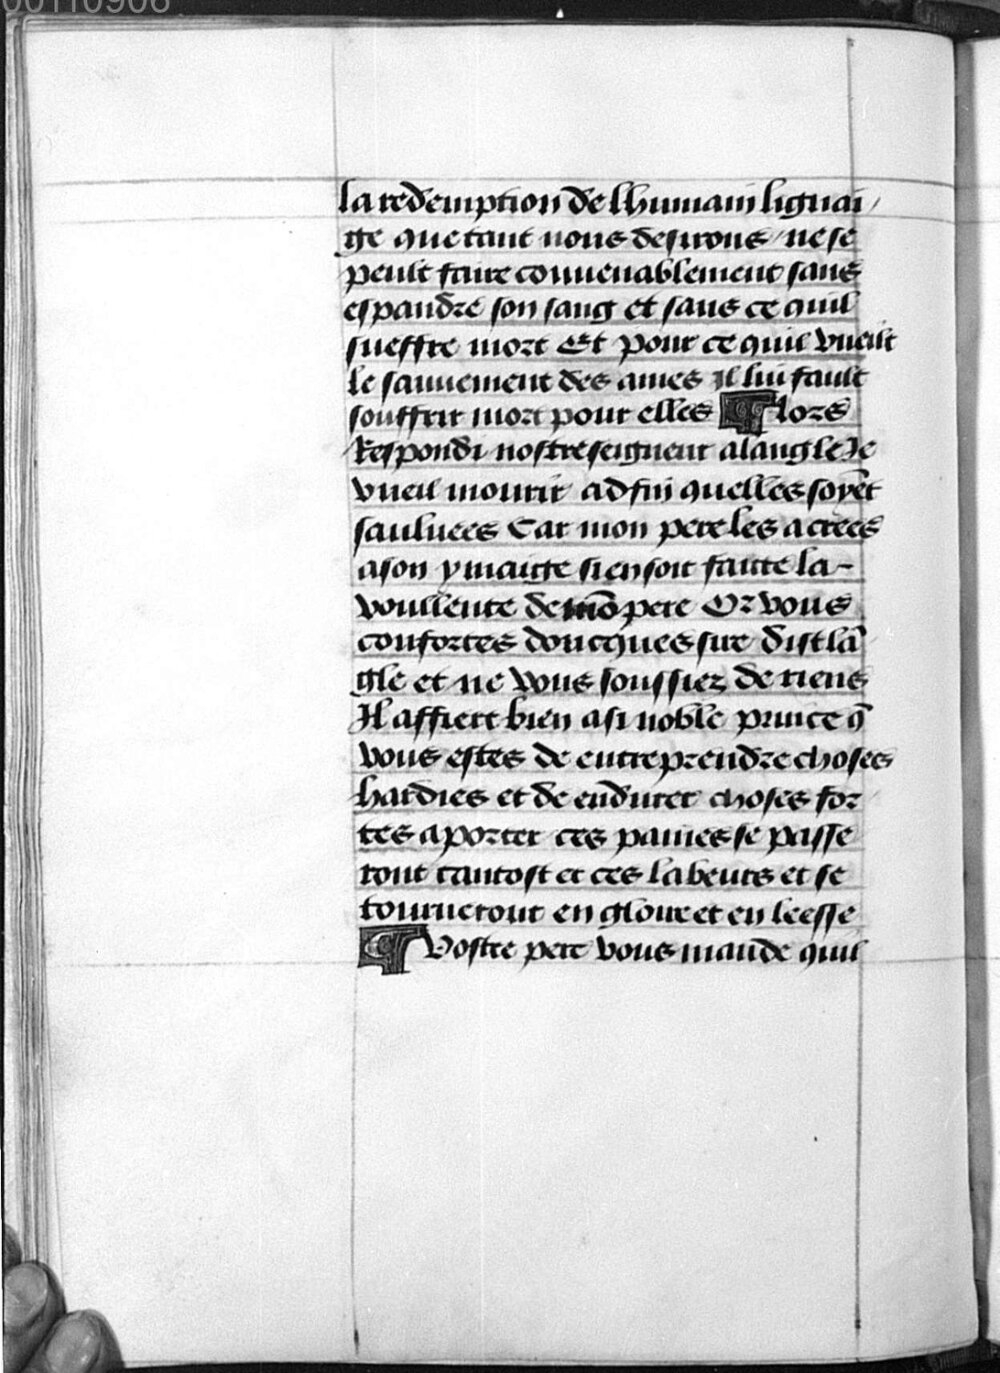 00110908
la redemption de lhumain lignai/
ge que tant nous desirons / ne se
peult faire conuenablement sans
espandre son sang et sans ce quil
sueffre mort Et pour ce quil vueilt
le sauuement des ames Il lui fault
souffrir mort pour elles ¶ lors
Respondi nostre seigneur a langle Je
vueil mourir adfin quelles soyēt
sauluees Car mon pere les a crees
a son ymaige si en soit faitte la-
voullente de mō pere Or vous
confortes doncques sire dist lā
gle et ne vous soussiez de riens
Il affiert bien a si noble prince q̄
vous estes de entreprendre choses
hardies et de endurer choses for
tes a porter ces paines se passe
ront tantost et ces labeurs et se
tourneront en gloire et en leesse
¶ Vostre pere vous mande quil